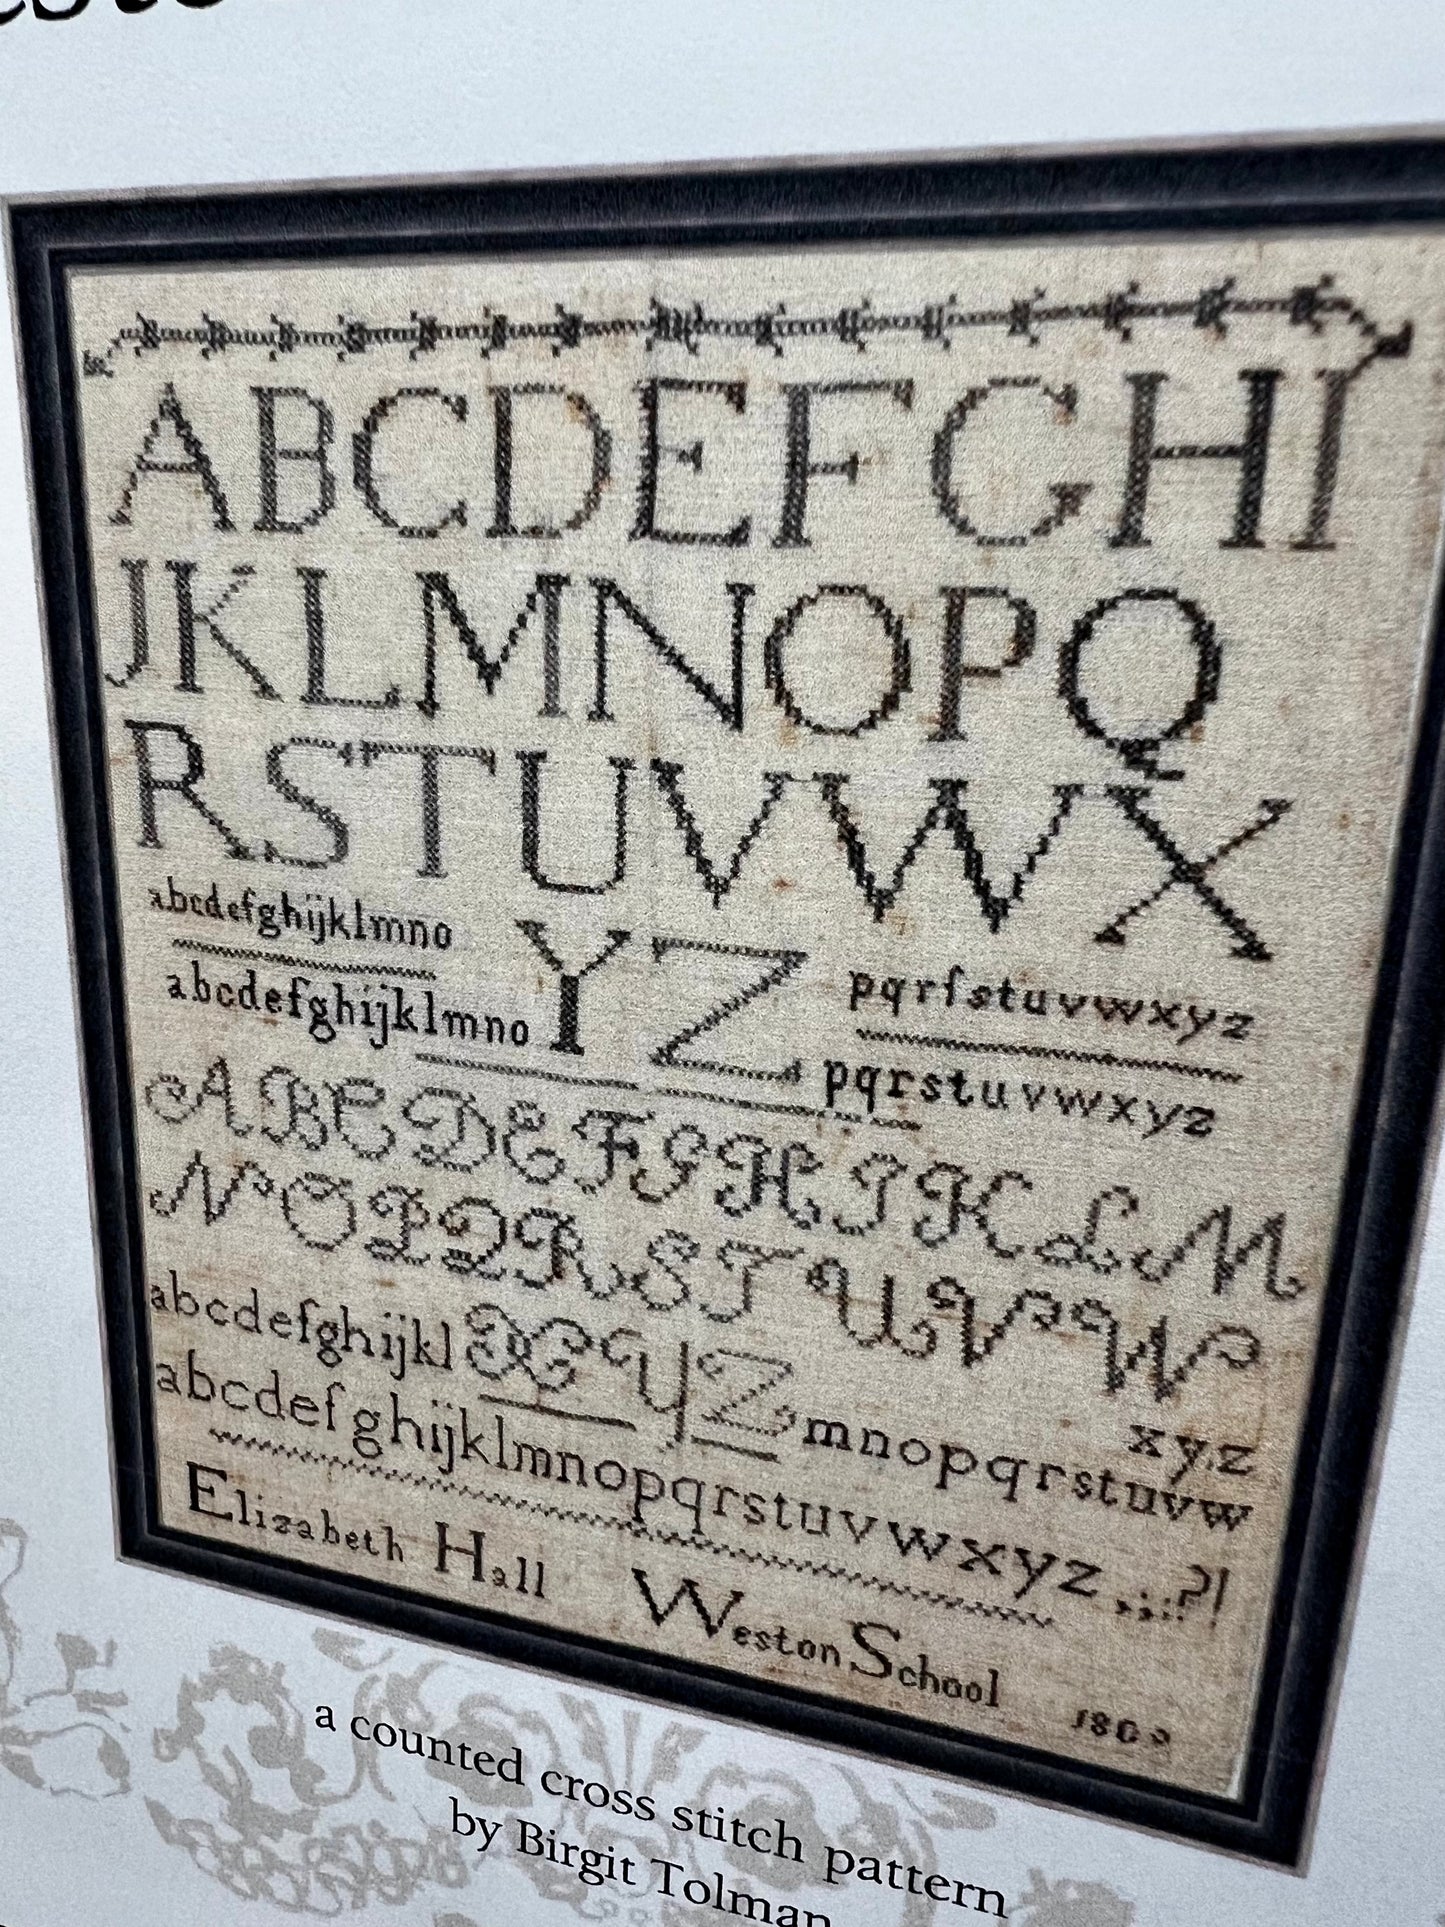 ABCDEFGHI
JKLMNOPQ
RSTUVWX
abcdefghijklmno
YZ
pqrſstuvwxyz
abcdefghijklmno
pqrstuvwxyz
ABCDEFGHIKLM
NOPQRSTUVW
XYZ
xyz
abcdefghijkl
mnopqrstuvw
abcdefghijklmnopqrstuvwxyz,;:?!
Elizabeth Hall Weston School
a counted cross stitch pattern
by Birgit Tolman